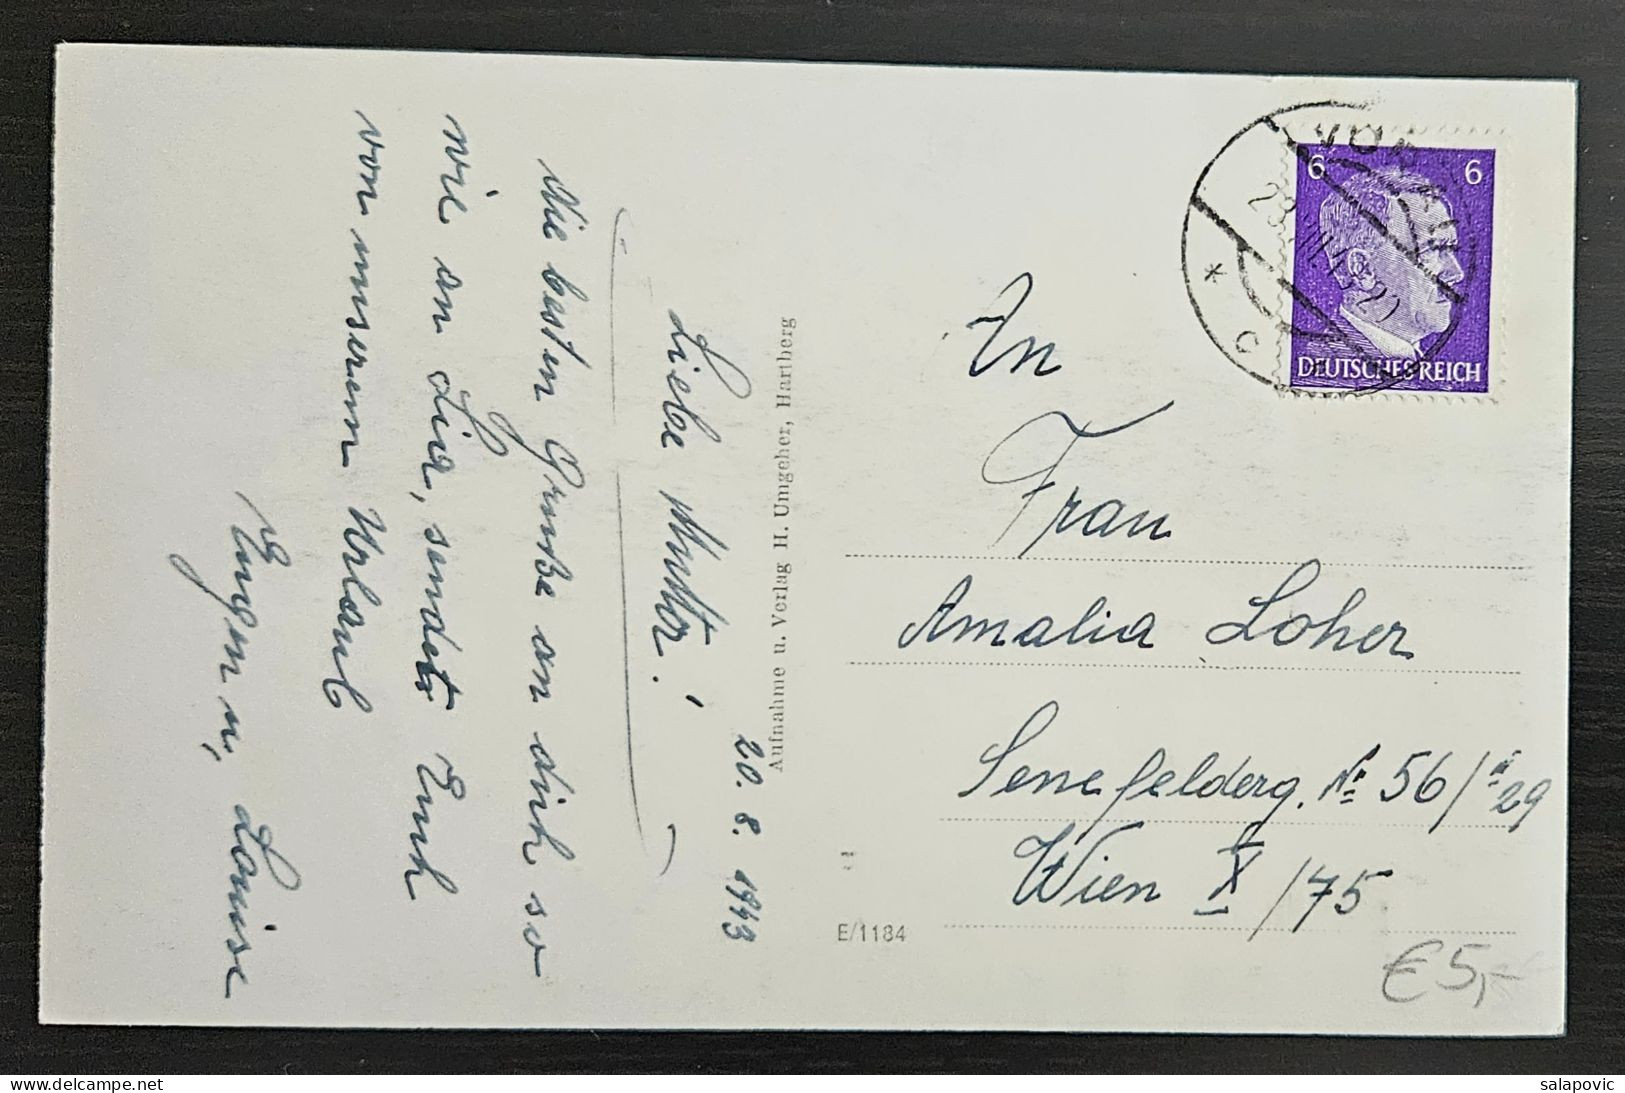 20. 8. 1943
Liebe Mutter!
Die besten Grüße an dich so
wie an Lia, sendet Euch
von unserem Urlaub
Eugen u. Louise
Aufnahme u. Verlag H. Umgeher, Hartberg
E/1184
VORAU
* C
6 6
DEUTSCHES REICH
An
Frau
Amalia Loher
Senefelderg. № 56/II 29
Wien X /75
€ 5,-
delcampe.net
salapovic